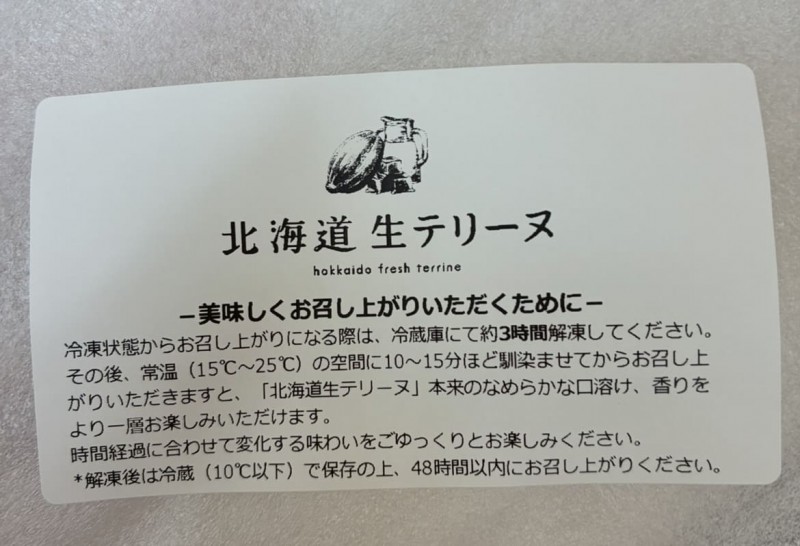 北海道 生テリーヌ
hokkaido fresh terrine
－美味しくお召し上がりいただくために－
冷凍状態からお召し上がりになる際は、冷蔵庫にて約3時間解凍してください。
その後、常温（15℃～25℃）の空間に10～15分ほど馴染ませてからお召し上
がりいただきますと、「北海道生テリーヌ」本来のなめらかな口溶け、香りを
より一層お楽しみいただけます。
時間経過に合わせて変化する味わいをごゆっくりとお楽しみください。
*解凍後は冷蔵（10℃以下）で保存の上、48時間以内にお召し上がりください。